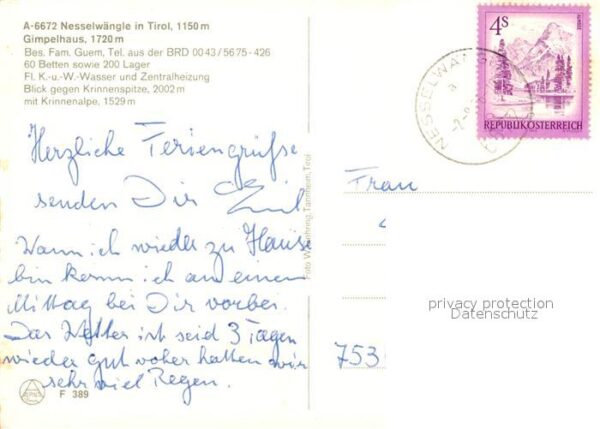 A-6672 Nesselwängle in Tirol, 1150 m
Gimpelhaus, 1720 m
Bes. Fam. Guem, Tel. aus der BRD 00 43/56 75 - 426
60 Betten sowie 200 Lager
Fl. K.- u.- W.- Wasser und Zentralheizung
Blick gegen Krinnenspitze, 2002 m
mit Krinnenalpe, 1529 m
Herzliche Feriengrüße
senden Dir Emil
Wann ich wieder zu Hause
bin komm ich an einem
Mittag bei Dir vorbei.
Das Wetter ist seid 3 Tagen
wieder gut voher hatten wir
sehr viel Regen.
F 389
Tannheim, Tirol
4S
REPUBLIK ÖSTERREICH
NESSELWÄNG
Frau
privacy protection
Datenschutz
753